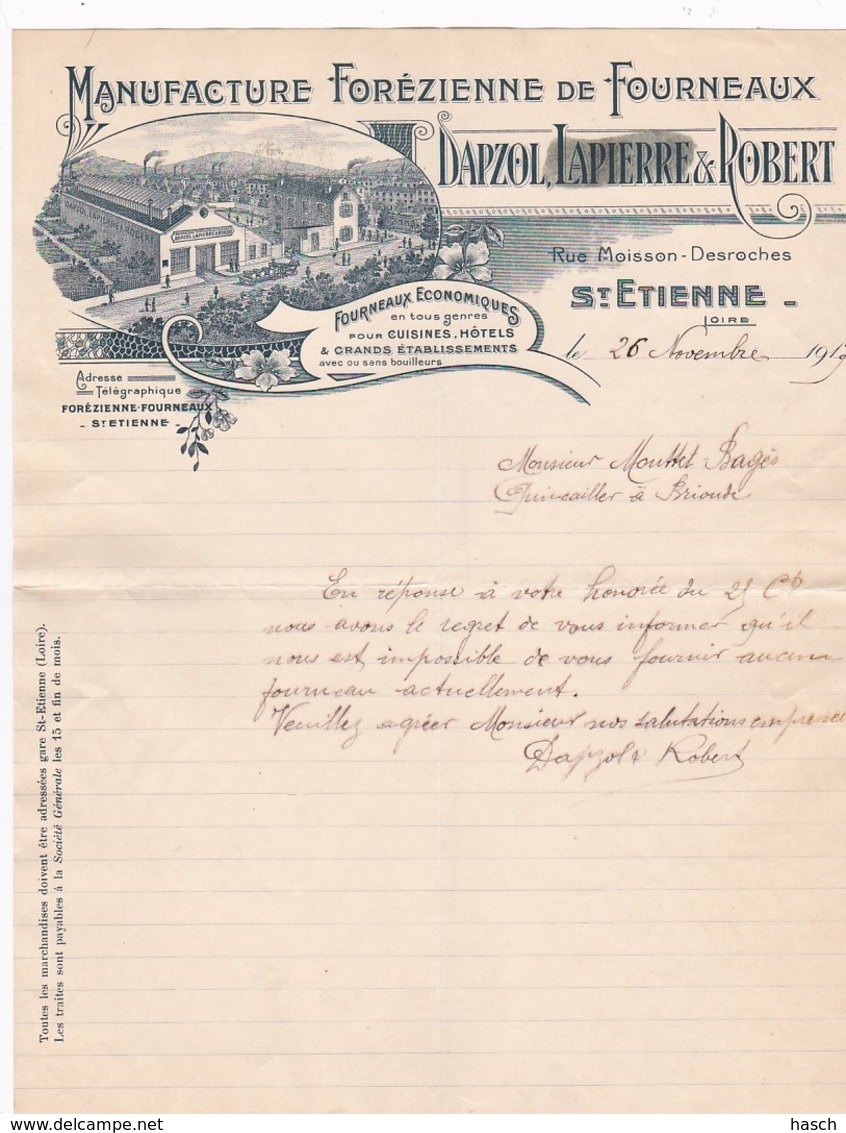 MANUFACTURE FORÉZIENNE DE FOURNEAUX
DAPZOL, LAPIERRE & ROBERT
DAPZOL LAPIERRE & ROBERT
DAPZOL, LAPIERRE & ROBERT
Rue Moisson-Desroches
ST ETIENNE -
LOIRE
FOURNEAUX ECONOMIQUES
en tous genres
POUR CUISINES, HÔTELS
& GRANDS ÉTABLISSEMENTS
avec ou sans bouilleurs
Adresse
Télégraphique
FORÉZIENNE-FOURNEAUX
- ST ETIENNE -
le 26 Novembre 1917
Monsieur Mouttet Bagès
Quincailler à Brioude
En réponse à votre honorée du 25 Ct
nous avons le regret de vous informer qu'il
nous est impossible de vous fournir aucun
fourneau actuellement.
Veuillez agréer Monsieur nos salutations empressé
Dapzol & Robert
Toutes les marchandises doivent être adressées gare St-Etienne (Loire).
Les traites sont payables à la Société Générale les 15 et fin de mois.
www.delcampe.net
hasch